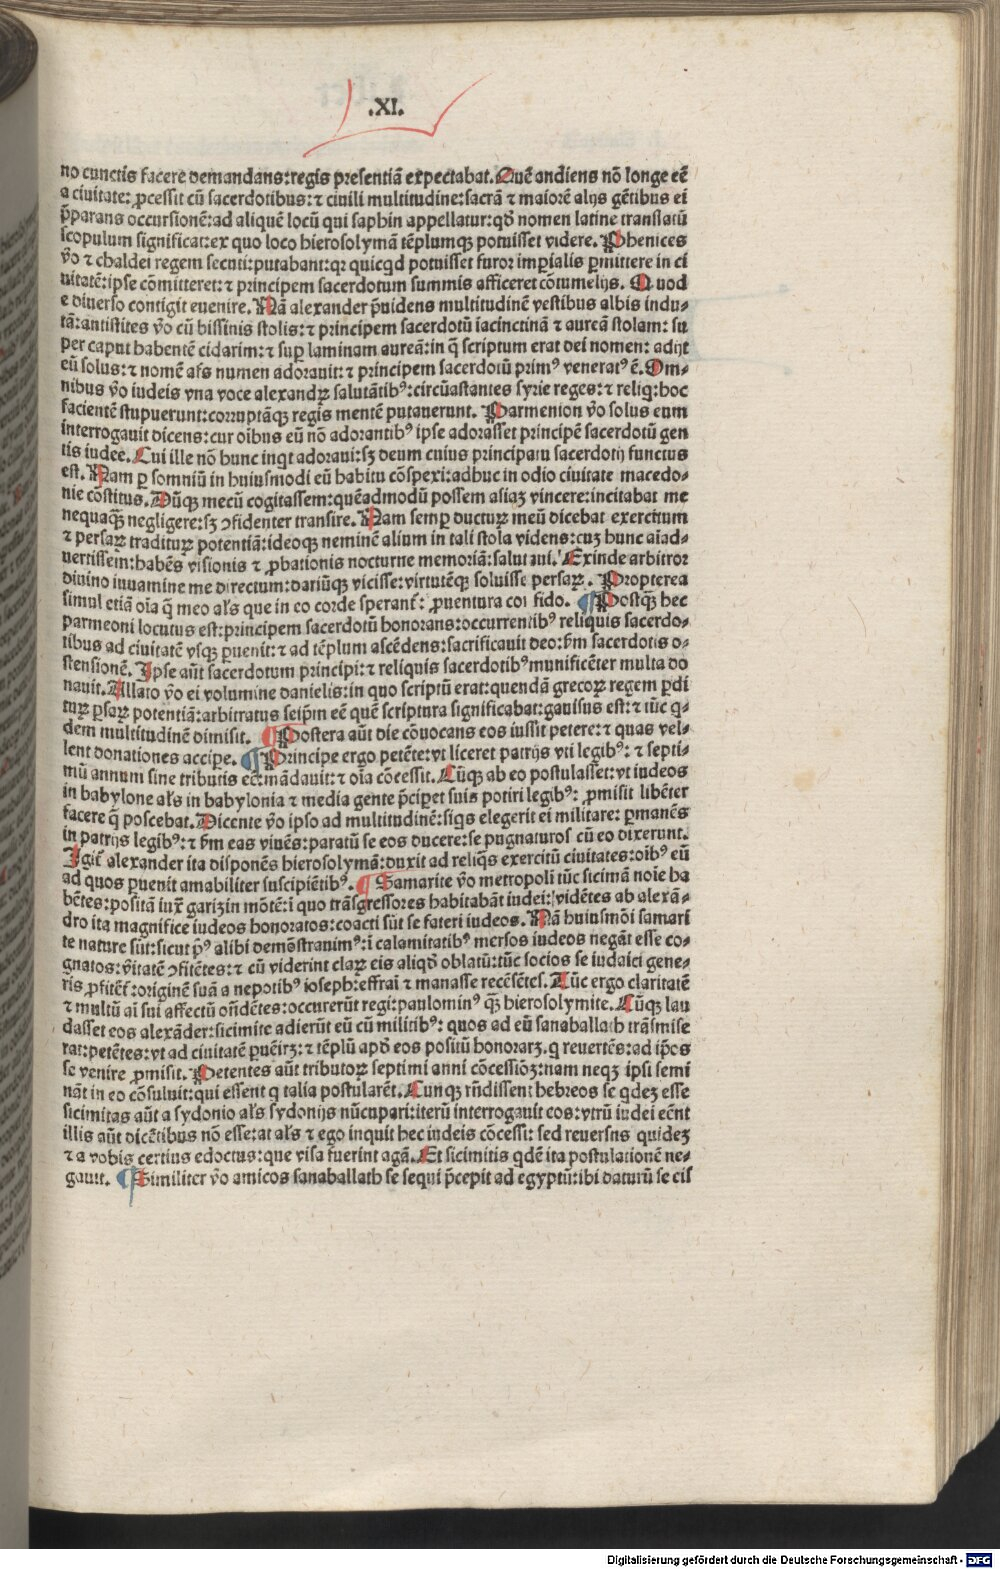 .XI.
no cunctis facere demandans:regis presentiā expectabat. Quē audiens nō longe eē
a ciuitate: ꝓcessit cū sacerdotibus: ⁊ ciuili multitudine:sacrā ⁊ maiorē alijs gētibus ei
p̄parans occursionē:ad aliquē locū qui saphin appellatur:qd̄ nomen latine translatū
scopulum significat:ex quo loco hierosolymā tēplumqꝫ potuisset videre. Phenices
v̄o ⁊ chaldei regem secuti:putabant:qꝛ quicqd potuisset furor imꝑialis ꝑmittere in ci
uitatē:ipse cōmitteret: ⁊ principem sacerdotum summis afficeret cōtumelijs. Quod
e diuerso contigit euenire. Nā alexander p̄uidens multitudinē vestibus albis indu-
tā:antistites v̄o cū bissinis stolis: ⁊ principem sacerdotū iacinctinā ⁊ aureā stolam: su
per caput habentē cidarim: ⁊ suꝑ laminam aureā:in q̄ scriptum erat dei nomen: adijt
eū solus: ⁊ nomē al̄s numen adorauit: ⁊ principem sacerdotū primꝰ veneratꝰ ē. Om-
nibus v̄o iudeis vna voce alexandꝝ salutātibꝰ:circūastantes syrie reges: ⁊ reliq:hoc
facientē stupuerunt:corruptāqꝫ regis mentē putauerunt. Parmenion v̄o solus eum
interrogauit dicens:cur oībus eū nō adorantibꝰ ipse adorasset principē sacerdotū gen
tis iudee. Cui ille nō hunc inqt adoraui:sꝫ deum cuius principatu sacerdotij functus
est. Nam ꝑ somniū in huiusmodi eū habitu cōspexi:adhuc in odio ciuitate macedo-
nie cōstitus. Dūqꝫ mecū cogitassem:quēadmodū possem asiaꝫ vincere:incitabat me
nequaqꝫ̄ negligere:sꝫ ꝯfidenter transire. Nam semꝑ ductuꝝ meū dicebat exercitum
⁊ persaꝝ traditurꝝ potentiā:ideoqꝫ neminē alium in tali stola videns:cuꝫ hunc aīad-
uertissem:habēs visionis ⁊ ꝓbationis nocturne memoriā:salutaui. Exinde arbitror
diuino iuuamine me directum:dariūqꝫ vicisse:virtutēqꝫ soluisse persaꝝ. Propterea
simul etiā oīa q̄ meo al̄s que in eo corde sperant̄: ꝓuentura con fido. ¶ Postqꝫ̄ hec
parmeoni locutus est:principem sacerdotū honorans:occurrentibꝰ reliquis sacerdo-
tibus ad ciuitatē vsqꝫ ꝑuenit: ⁊ ad tēplum ascēdens:sacrificauit deo:ẜm sacerdotis o-
stensionē. Ipse aūt sacerdotum principi: ⁊ reliquis sacerdotibꝰ munificēter multa do
nauit. Allato v̄o ei volumine danielis:in quo scriptū erat:quendā grecoꝝ regem ꝑdi
turꝝ ꝑsaꝝ potentiā:arbitratus seip̄m eē quē scriptura significabat:gauisus est: ⁊ tūc q-
dem multitudinē dimisit. ¶ Postera aūt die cōuocans eos iussit petere: ⁊ quas vel-
lent donationes accipe. ¶ Principe ergo petēte:vt liceret patrijs vti legibꝰ: ⁊ septi-
mū annum sine tributis eē:mādauit: ⁊ oīa cōcessit. Cūqꝫ ab eo postulasset:vt iudeos
in babylone al̄s in babylonia ⁊ media gente p̄ciperet suis potiri legibꝰ: ꝓmisit libēter
facere q̄ poscebat. Dicente v̄o ipso ad multitudinē:siqs elegerit ei militare: ꝑmanēs
in patrijs legibꝰ: ⁊ ẜm eas viuēs:paratū se eos ducere:se pugnaturos cū eo dixerunt.
Igit̄ alexander ita disponēs hierosolymā:duxit ad reliq̄s exercitū ciuitates:oībꝰ eū
ad quos ꝑuenit amabiliter suscipiētibꝰ. ¶ Samarite v̄o metropoli tūc sicimā noīe ha
bētes:positā iux̄ garizin mōtē:ī quo trāsgressores habitabāt iudei:vidētes ab alexā-
dro ita magnifice iudeos honoratos:coacti sūt se fateri iudeos. Nā huiusmōi samari
te nature sūt:sicut p̄ꝰ alibi demōstrauimꝰ:ī calamitatibꝰ mersos iudeos negāt esse co-
gnatos:v̄itatē ꝯfitētes: ⁊ cū viderint claꝝ eis aliqd̄ oblatū:tūc socios se iudaici gene-
ris ꝓfitēt̄:originē suā a nepotibꝰ ioseph:effrai ⁊ manasse recēsētes. Tūc ergo claritatē
⁊ multū aī sui affectū oñdētes:occurerūt regi:paulominꝰ qꝫ̄ hierosolymite. Cūqꝫ lau
dasset eos alexāder:sicimite adierūt eū cū militibꝰ: quos ad eū sanaballath trāsmise
rat:petētes:vt ad ciuitatē ꝑuēirꝫ: ⁊ tēplū apd̄ eos positū honorarꝫ.q reuertēs:ad ip̄os
se venire ꝓmisit. Petentes aūt tributoꝝ septimi anni cōcessiōꝫ:nam neqꝫ ipsi semi
nāt in eo cōsuluit:qui essent q talia postularēt. Cunqꝫ rn̄dissent hebreos se qdeꝫ esse
sicimitas aūt a sydonio al̄s sydonijs nūcupari:iterū interrogauit eos:vtrū iudei eēnt
illis aūt dicētibus nō esse:at al̄s ⁊ ego inquit hec iudeis cōcessi: sed reuersus quideꝫ
⁊ a vobis certius edoctus:que visa fuerint agā. Et sicimitis qdē ita postulationē ne-
gauit. ¶ Similiter v̄o amicos sanaballath se sequi p̄cepit ad egyptū:ibi daturū se eis
Digitalisierung gefördert durch die Deutsche Forschungsgemeinschaft - DFG